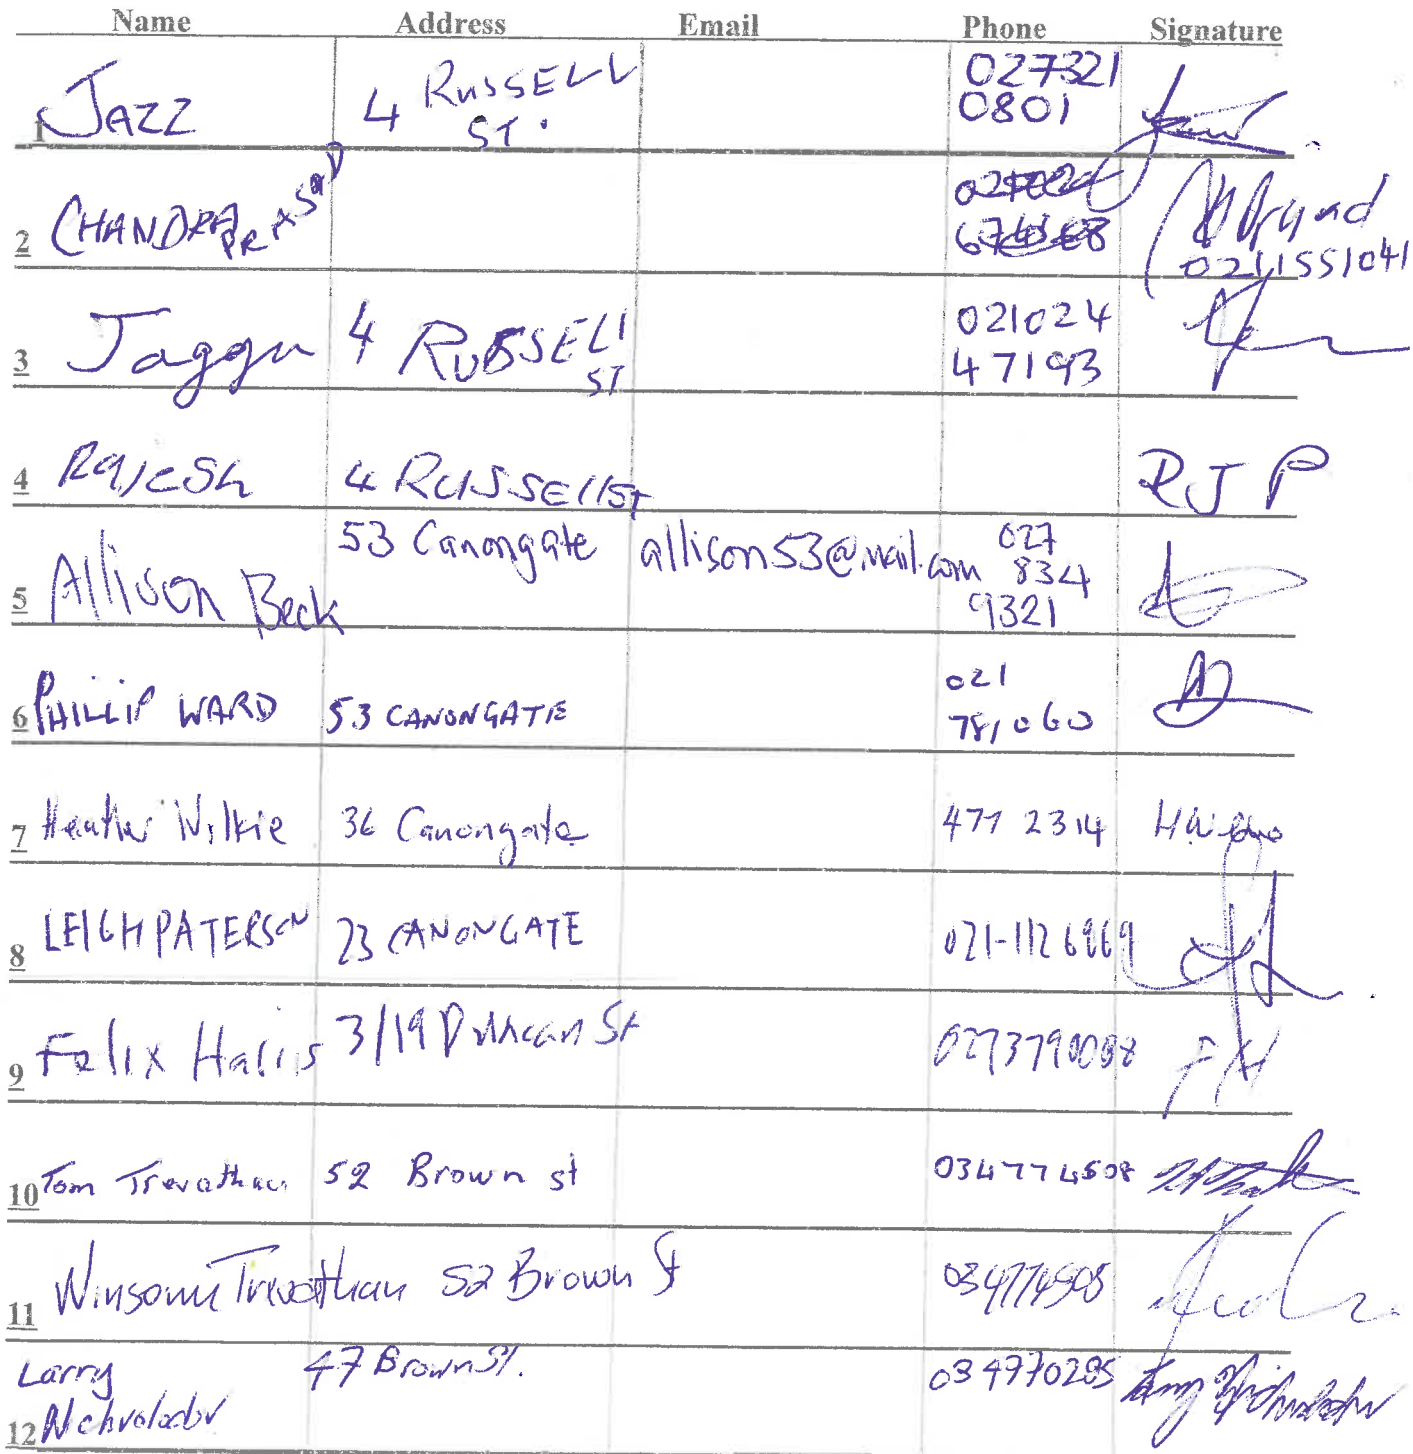 Name Address Email Phone Signature
1 JAZZ 4 RUSSELL ST. 027321 0801
2 CHANDRA PRASAD 0211551041
3 Jaggu 4 RUSSELL ST 021024 47193
4 Rajesh 4 RUSSELL ST RJP
5 Allison Beck 53 Canongate allison53@mail.com 027 834 9321
6 PHILLIP WARD 53 CANONGATE 021 781060
7 Heather Wilkie 36 Canongate 477 2314
8 LEIGH PATERSON 23 CANONGATE
9 Felix Harris 3/19 Duncan St FH
10 Tom Trevathan 52 Brown st 034774508
11 Winsome Trevathan 52 Brown St 034774508
12 Larry 47 Brown St. 034770285